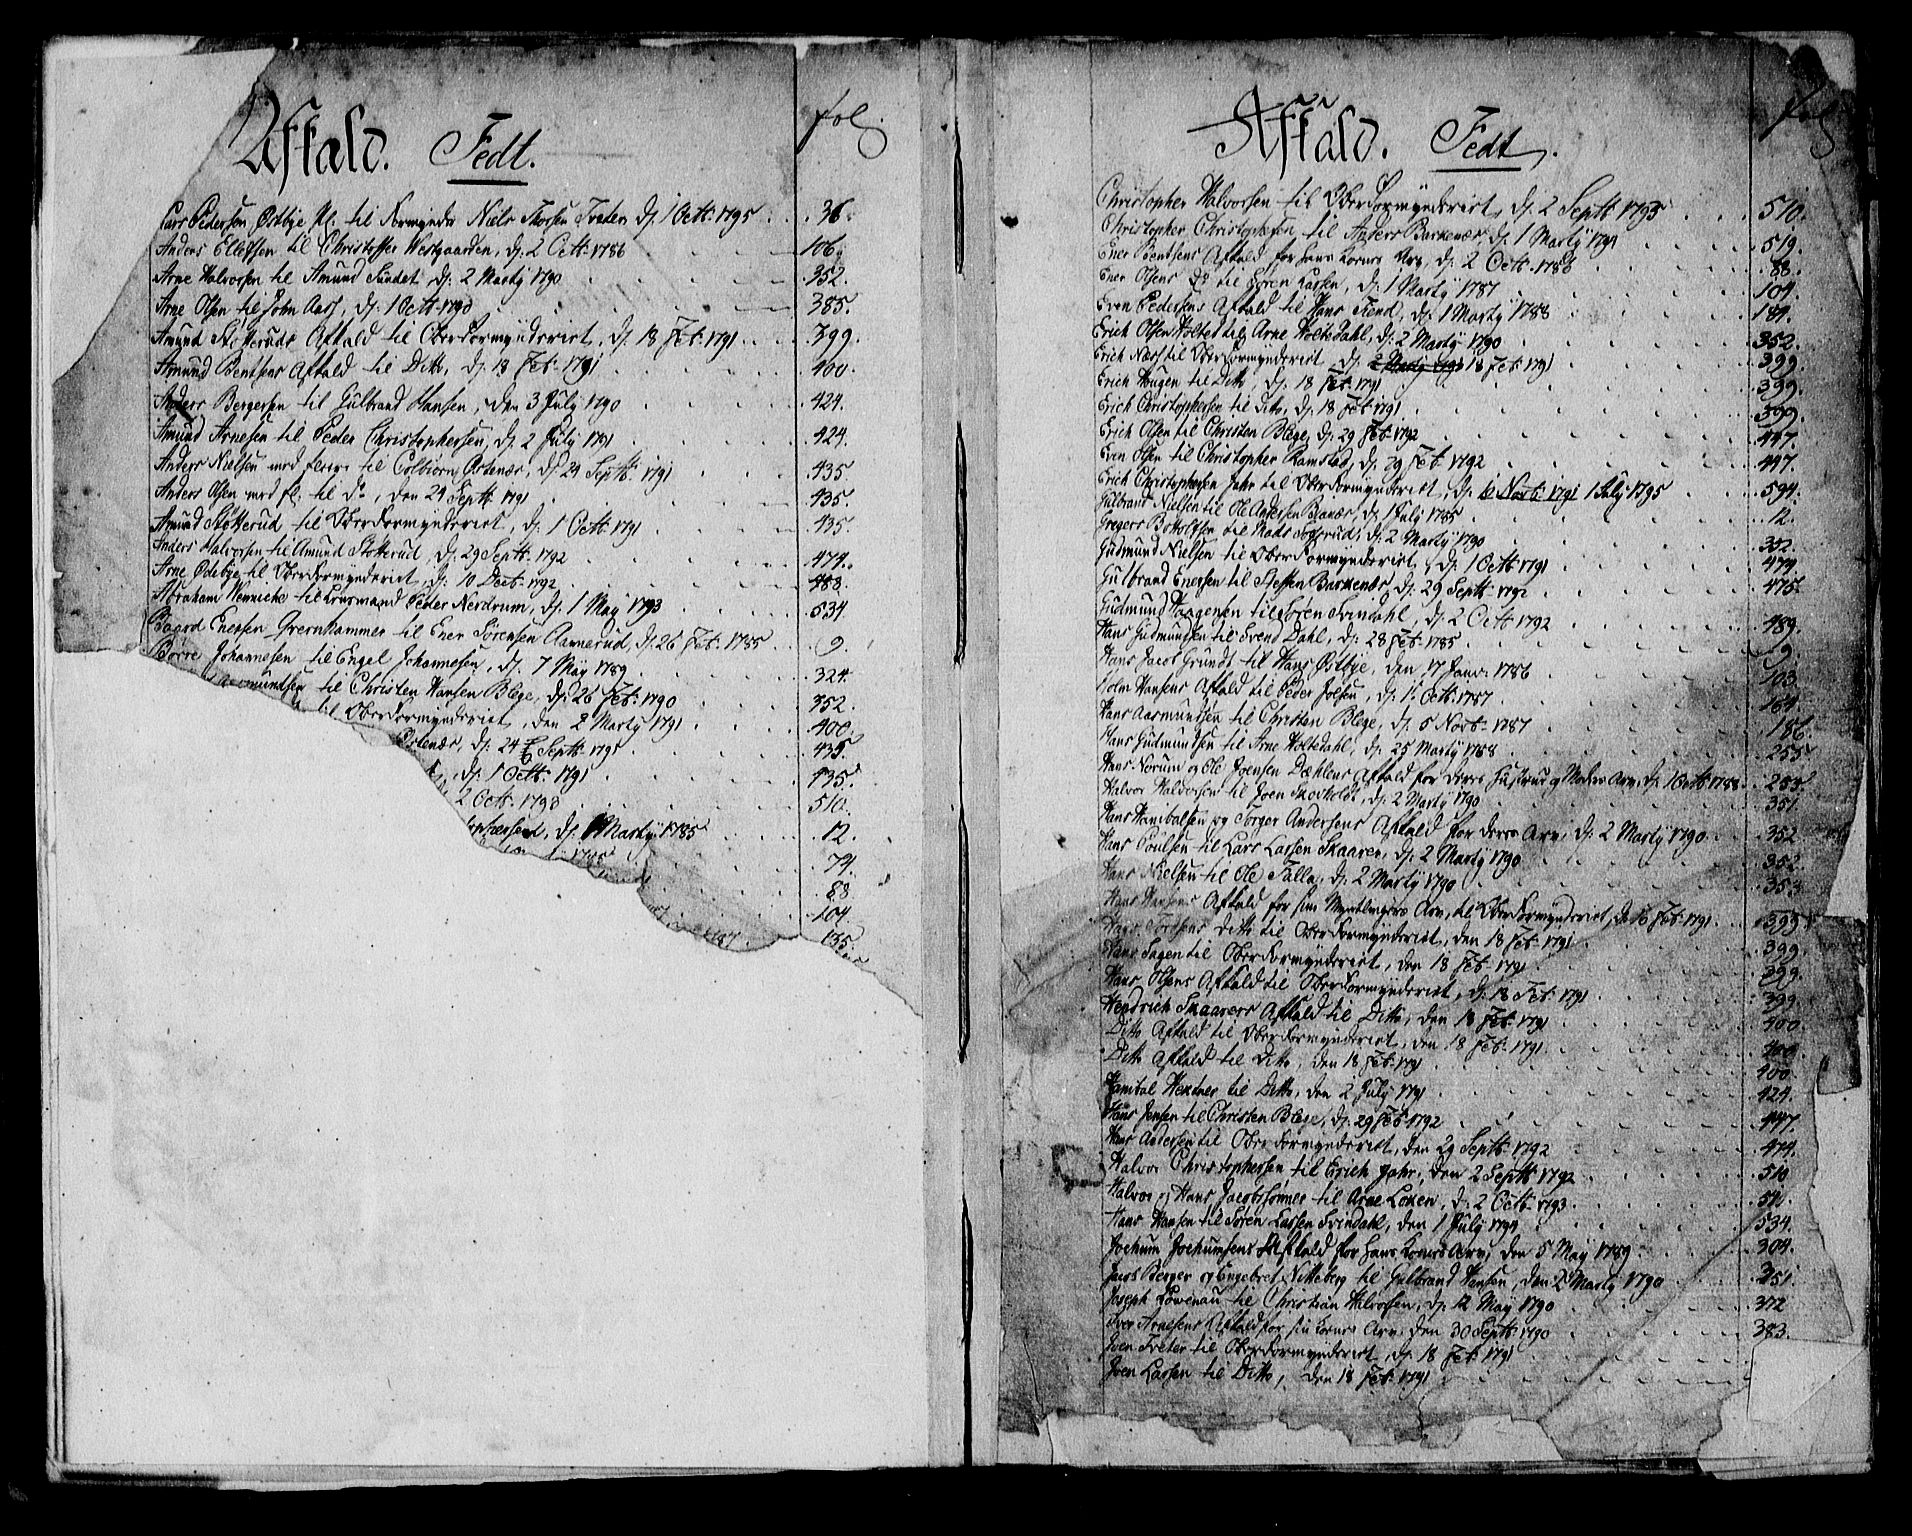 Afkald. Fedt. fol
Lars Pedersen Østbye Pl. til Formynder Niels Thorsen Træter dj 1 Octb: 1795 36.
Anders Ellefsen til Christoffer Westgaarden, dj: 2 Octb: 1786 106.
Arne Halvorsen til Amund Sundet, dj: 2 Marty 1790 352.
Arne Olsen til John Aass, dj: 1 Octb: 1790 385.
Amund Støtteruds Afkald til Oberformynderiet, dj 18 Feb: 1791 399.
Amund Bentsens Afkald til Ditto, dj: 18 Feb: 1791 400.
Anders Bergersen til Gulbrand Hansen, den 3 July 1790 424.
Amund Arnesen til Peder Christophersen, dj 2 July 1791 424.
Anders Nielsen med flere til Colbiørn Østenær, dj 24 Septb: 1791 435.
Anders Olsen med fl: til Do, den 24 Septb 1791 435.
Amund Støtterud til Oberformynderiet, dj 1 Octb: 1791 435.
Anders Halvorsen til Amund Støtterud, dj: 29 Septb: 1792 474.
Arne Ødebye til Oberformynderiet, dj: 10 Decb: 1792 488.
Abraham Hennicke til Lensmand Peder Nerdrum, dj 1 May 1793 534
Baard Enersen Grevnhammer til Ener Sørensen Aannerud, dj: 26 Feb: 1785 9.
Børre Johannesen til Engel Johannesen, dj. 7 May 1789 324.
mundsen til Christen Hansen Blege, dj: 26 Feb: 1790 352.
til Oberformynderiet, den 2 Marty 1791 400.
Østenær, dj: 24 Septb: 1791 435.
dj: 1 Octb: 1791 435.
2 Octb: 1793 510.
tophersen, dj. 1 Marty 1785 12.
74.
88.
104
1787. 135.
Afkald. Fedt. fol
Christopher Halvorsen til Oberformynderiet, dj 2 Septb 1793 510.
Christopher Christophersen til Anders Barkenæs, dj. 1 Marty 1794 519.
Ener Bentsens Afkald for hans Kones Arv, dj. 2 Octb: 1786 88.
Ener Olsens Do til Søren Larsen, dj 1 Marty 1787 104.
Even Pedersens Afkald til Hans Fiend, dj: 1 Marty 1788 189.
Erich Olsen Holtet til Arne Holtedahl, dj: 2 Marty 1790 352.
Erich Næss til Oberformynderiet dj: 2 Marty 1791 18 Feb: 1791 399.
Erich Haugen til Ditto, dj. 18 Feb 1791 399.
Erich Christophersen til Ditto, dj. 18 Feb 1791 399.
Erich Olsen til Christen Blege, dj: 29 Feb: 1792 447.
Even Olsen til Christopher Ramstad, dj: 29 Feb: 1792 447.
Erich Christophersen Jahr til Oberformynderiet, dj. 6 Novb: 1791 1 July 1795 594.
Gulbrand Nielsen til Ole Andersen Bianæs, dj 1 July 1785 12.
Gregers til Mads Togerud, dj: 2 Marty 1790 352.
Gudmund Nielsen til Oberformynderiet, dj: 1 Octb 1791 474.
Gulbrand Enersen til Steffen Barkenæs, dj. 29 Septb: 1792 475.
Gudmund Haagensen til Søren Svindahl, dj. 2 Octb 1792 489.
Hans Gudmundsen til Svend Dahl, dj: 28 Feb: 1785 9.
Hans Jacob Grundt til Hans Østbye, den 17 Janv: 1786 103.
Holm Hansens Afkald til Peder Joesen, dj. 1 Octb: 1787 164.
Hans Aasmundsen til Christen Blege, dj. 5 Novb: 1787 186.
Hans Gudmundsen til Arne Holtedahl, dj: 25 Marty 1788 255
Hans Norum og Ole Joensen Dæhlens Afkald for deres Hustrue og Moders Arv, dj: 1 Octb: 1788 255.
Halvor Halvorsen til Joen Skovholdt, dj: 2 Marty 1790 351.
Hans Hanibalsen og Torger Andersens Afkald for deres Arv, dj: 2 Marty 1790 352
Hans Poulsen til Lars Larsen Skaaren, dj: 2 Marty 1790 352.
Hans Nielsen til Ole Talla, dj: 2 Marty 1790 353.
Hans Hansens Afkald for sin Myndtlings Arv, til Oberformynderiet, dj 18 Feb: 1791 399.
Ditto til Oberformynderiet, den 18 Feb: 1791 399.
Hans Sagen til Oberformynderiet, den 18 Feb: 1791 399.
Hans Olsens Afkald til Oberformynderiet, dj. 18 Feb: 1791 399.
Hendrich Skaarers Afkald til Ditto, den 18 Feb: 1791 400.
Ditto Afkald til Oberformynderiet, den 18 Feb: 1791 400.
Ditto Afkald til Ditto, den 18 Feb: 1791 400.
Hanibal Hexnes til Ditto, den 2 July 1791 424.
Hans Jensen til Christen Blege, dj. 29 Feb 1792 447.
Hans Andersen til Oberformynderiet, den 29 Septb: 1792 474.
Halvor Christophersen til Erich Jahr, den 2 Septb 1792 510
Halvor og Hans Jacobsønner til Arne Loken, dj. 2 Octb: 1793 510.
Hans Hansen til Søren Larsen Svindahl, den 1 July 1794 534.
Jochum Jochumsens Afkald for hans Kones Arv, den 5 May 1789 304.
Jacob Berger og Engebret Nitteberg til Gulbrand Hansen, den 2 Marty 1790 351.
Joseph Løvenau til Christian Halvorsen, dj: 12 May 1790 372
Iver Arnesens Afkald for sin Kones Arv, den 30 Septb: 1790 383.
Joen Træter til Oberformynderiet, dj: 18 Feb: 1791
Joen Larsen til Ditto, den 18 Feb: 1791